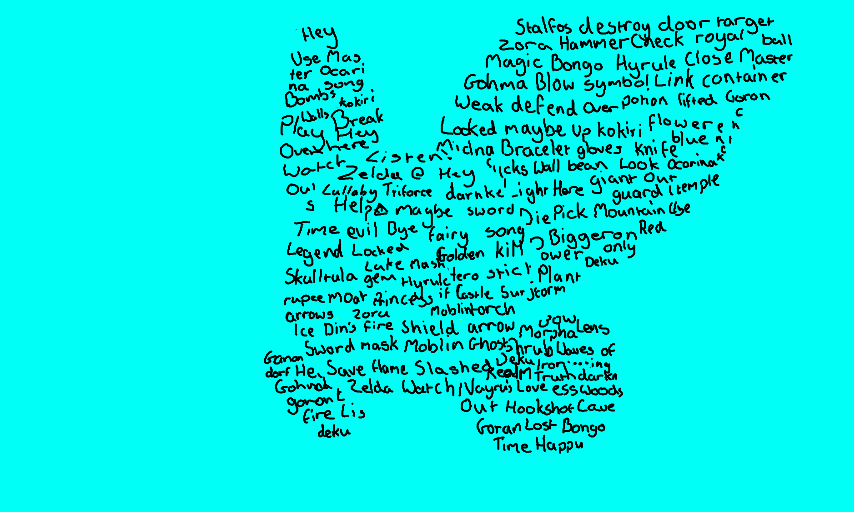 Hey
Stalfos destroy door target
Zora Hammer Check royal ball
Use Mas
Magic Bongo Hyrule Close Master
ter Ocari
na song
Gohma Blow symbol Link container
Bombs kokiri
Weak defend Over potion lifted Goron
Walls Break
Play Hey
Locked maybe Up kokiri flower
Over here
Midna Bracelet gloves Knife blue
Watch Listen!
Zelda @ Hey
Wall bean Look Ocarina
Out Lullaby Triforce darnke Light Here giant Out
guard temple
s Help maybe sword Die Pick Mountain Use
Time evil Bye fairy song
Biggeron Red
Legend Locked
Golden kiM
ower only
Deku
Lake Mask
Skulltula gem Hyrule tero stict Plant
rupee moat Princess if Castle Sur storm
arrows Zora Moblin torch
Ice Din's fire Shield arrow Morpha Lens
bow
Sword mask Moblin Ghost Shrub Waves of
Ganon
dorf He, Save flame Slashed Deku Iron
Realm Truth dark
Gohmah Zelda Watch / Nayru's Love ess Woods
goron t
fire Lis
Out Hookshot Cave
deku
Goran Lost Bongo
Time Happy